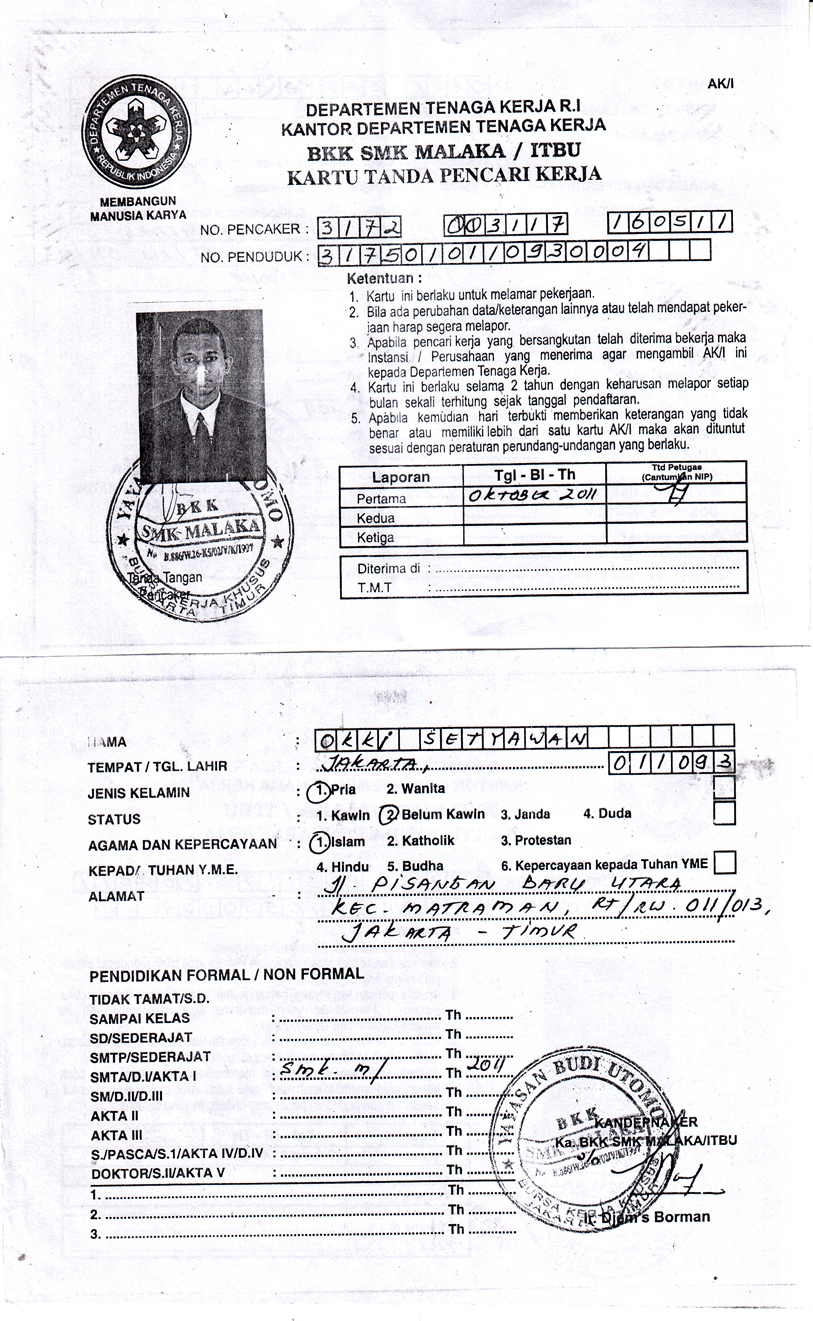 AK/I
DEPARTEMEN TENAGA KERJA
REPUBLIK INDONESIA
MEMBANGUN
MANUSIA KARYA
DEPARTEMEN TENAGA KERJA R.I
KANTOR DEPARTEMEN TENAGA KERJA
BKK SMK MALAKA / ITBU
KARTU TANDA PENCARI KERJA
NO. PENCAKER : 3172 003117 160511
NO. PENDUDUK : 3175010110930004
Ketentuan :
1. Kartu ini berlaku untuk melamar pekerjaan.
2. Bila ada perubahan data/keterangan lainnya atau telah mendapat peker-
jaan harap segera melapor.
3. Apabila pencari kerja yang bersangkutan telah diterima bekerja maka
Instansi / Perusahaan yang menerima agar mengambil AK/I ini
kepada Departemen Tenaga Kerja.
4. Kartu ini berlaku selama 2 tahun dengan keharusan melapor setiap
bulan sekali terhitung sejak tanggal pendaftaran.
5. Apabila kemudian hari terbukti memberikan keterangan yang tidak
benar atau memiliki lebih dari satu kartu AK/I maka akan dituntut
sesuai dengan peraturan perundang-undangan yang berlaku.
Laporan Tgl - Bl - Th Ttd Petugas
(Cantumkan NIP)
Pertama OKTOBER 2011
Kedua
Ketiga
Diterima di :
T.M.T :
UTOMO
BKK
SMK MALAKA
BURSA KERJA KHUSUS
JAKARTA TIMUR
Tanda Tangan
Pencaker
NAMA : OKKI SETYAWAN
TEMPAT / TGL. LAHIR : JAKARTA, 011093
JENIS KELAMIN : 1. Pria 2. Wanita
STATUS : 1. Kawin 2 Belum Kawin 3. Janda 4. Duda
AGAMA DAN KEPERCAYAAN : 1. Islam 2. Katholik 3. Protestan
KEPAD/ TUHAN Y.M.E. 4. Hindu 5. Budha 6. Kepercayaan kepada Tuhan YME
ALAMAT : Jl. PISANGAN BARU UTARA
KEC. MATRAMAN, RT/RW. 011/013,
JAKARTA - TIMUR
PENDIDIKAN FORMAL / NON FORMAL
TIDAK TAMAT/S.D.
SAMPAI KELAS : Th
SD/SEDERAJAT : Th
SMTP/SEDERAJAT : Th
SMTA/D.I/AKTA I : Smk. m/ Th 2011
SM/D.II/D.III : Th
AKTA II : Th
AKTA III : Th
S./PASCA/S.1/AKTA IV/D.IV : Th
DOKTOR/S.II/AKTA V : Th
1. Th
2. Th
3. Th
YAYASAN BUDI UTOMO
BKK
SMK MALAKA
BURSA KERJA KHUSUS
JAKARTA TIMUR
KANDEPNAKER
Ka. BKK SMK MALAKA/ITBU
Ir. Djem's Borman